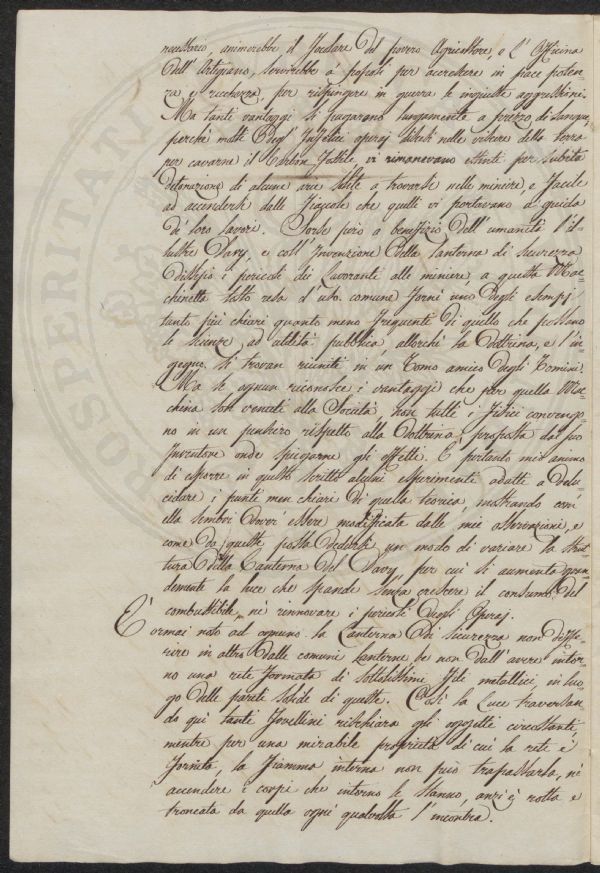 necessario, animerebbe il focolare del povero Agricoltore, e l'Officina
dell'Artegiano, servirebbe à popoli per accrescere in pace poten=
za e ricchezza, per rispingere in guerra le ingiuste aggressioni.
Ma tanti vantaggi si pagarono lungamente a prezzo di sangue,
perchè molti degl'Infelici operaj discesi nelle viscere della terra
per cavarne il Carbon Fossile, vi rimanevano estinti per subita
detonazione di alcune arie solite a trovarsi nelle miniere, e facile
ad accendersi dalle fiaccole che quelli vi portavano a guida
de' loro lavori. Sorse però a benefizio dell'umanità l'il=
lustre Davy, e coll'Invenzione della Lanterna di sicurezza
dissipò i pericoli dei Lavoranti alle miniere, a questa Mac=
chinetta tosto resa d'uso comune fornì uno degli esempj
tanto più chiari quanto meno frequenti di quello che possano
le scienze ad utilità pubblica, allorchè la Dottrina, e l'in=
gegno si trovan riuniti in un Uomo amico degli Uomini.
Ma se ognun riconosce i vantaggi che per quella Mac=
china son venuti alla Società, non tutti i Fisici convengo=
no in un pensiero rispetto alla Dottrina proposta dal suo
Inventore onde spiegarne gli effetti. E portando mio animo
di esporre in questo scritto alcuni esperimenti adatti a delu=
cidare i punti men chiari di quella teorica, mostrando com'
ella sembri dover essere modificata dalle mie osservazioni, e
come da queste possa dedursi un modo di variare la strut=
tura della Lanterna del Davy, per cui si aumenta gran=
demente la luce che spande senza crescere il consumo del
combustibile, nè rinnovare i pericoli degli Operaj.
È ormai noto ad ognuno la Lanterna di sicurezza non diffe=
rire in altro dalle comuni lanterne se non dall'avere intor=
no una rete formata di sottilissimi fili metallici, in luo=
go delle pareti solide di queste. Così la Luce traversan=
do qui tante forellini rischiara gli oggetti circostanti,
mentre per una mirabile proprietà di cui la rete è
fornita, la fiamma interna non può trapassarla, nè
accendere i corpi che intorno le stanno, anzi è rotta e
troncata da quella ogni qualvolta l'incontra.
PROSPERITATI